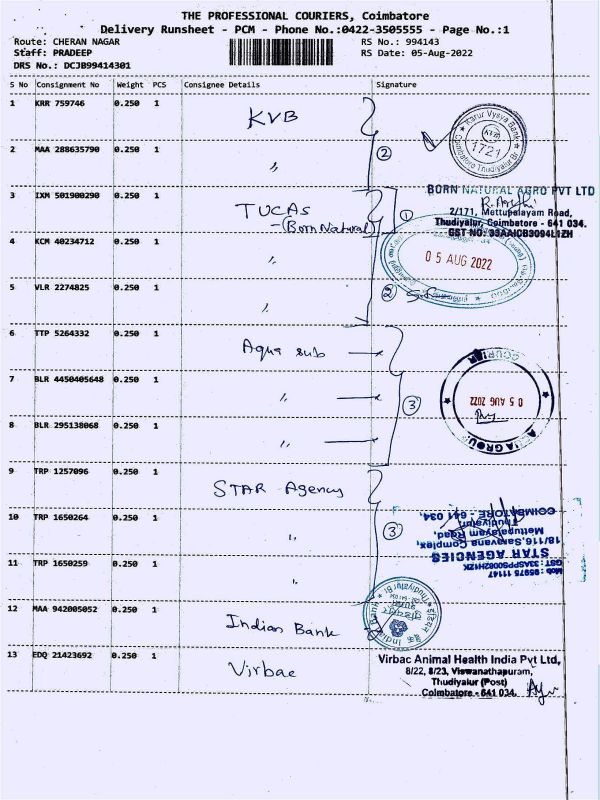 THE PROFESSIONAL COURIERS, Coimbatore
Delivery Runsheet - PCM - Phone No.:0422-3505555 - Page No.:1
Route: CHERAN NAGAR RS No.: 994143
Staff: PRADEEP RS Date: 05-Aug-2022
DRS No.: DCJB99414301
S No Consignment No Weight PCS Consignee Details Signature
1 KRR 759746 0.250 1 KVB
Karur Vysya Bank
KVB
1721
Coimbatore Thudiyalur Br
2 MAA 288635790 0.250 1 " 2
3 IXM 501900290 0.250 1 TUCAS 1
-(Born Natural)
BORN NATURAL AGRO PVT LTD
2/171, Mettupalayam Road,
Thudiyalur, Coimbatore - 641 034.
GST NO: 33AAICB3094L1ZH
4 KCM 40234712 0.250 1 "
05 AUG 2022
5 VLR 2274825 0.250 1 "
6 TTP 5264332 0.250 1 Aqua sub
7 BLR 4450405648 0.250 1 " 3
COURIER
05 AUG 2022
8 BLR 295138068 0.250 1 "
9 TRP 1257096 0.250 1 STAR Agency
10 TRP 1650264 0.250 1 " 3
11 TRP 1650259 0.250 1 "
Mob: 95975 11147
GST: 33ASPPS0082H1ZK
STAR AGENCIES
18/116, Saravana Complex,
Mettupalayam Road,
Thudiyalur,
COIMBATORE - 641 034.
12 MAA 942005052 0.250 1 Indian Bank
Indian Bank
Thudiyalur Br
13 EDQ 21423692 0.250 1 Virbac
Virbac Animal Health India Pvt Ltd,
8/22, 8/23, Viswanathapuram,
Thudiyalur (Post)
Coimbatore - 641 034.